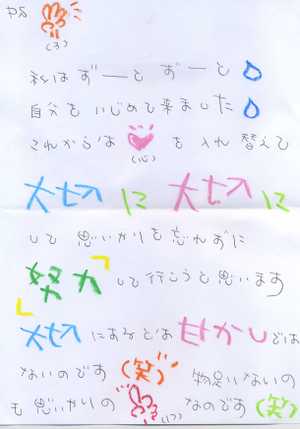 PS
私はずーーとずーーと
自分をいじめて来ました
これからは を入れ替えて
(心)
大切に大切に
して思いやりを忘れずに
「努力」して行こうと思います
大切に とは甘やかしでは
ないのです(笑) 物足りないの
も思いやりの(1つ)なのです(笑)